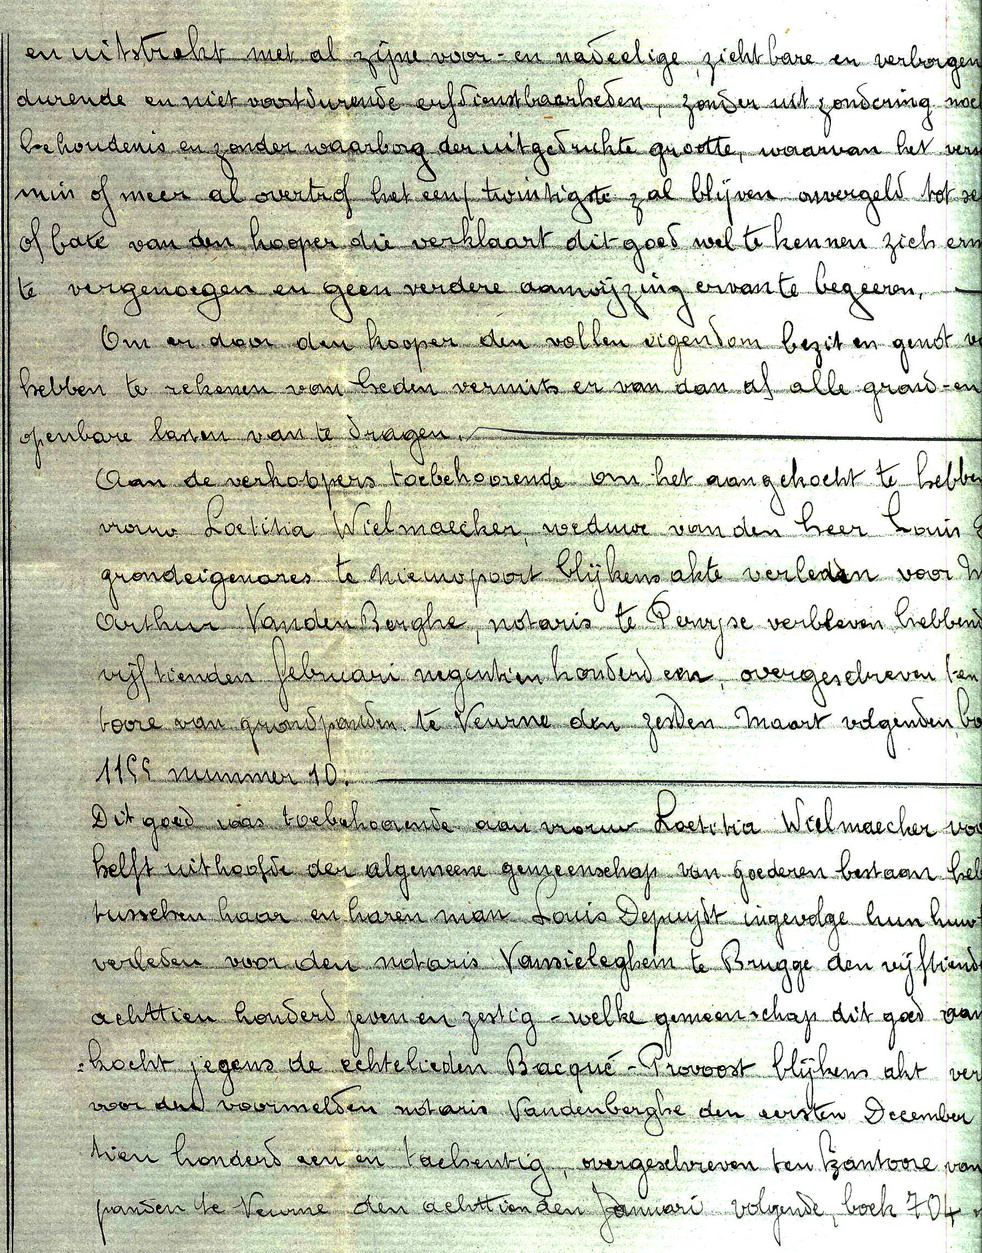 en uitstrekt met al zijne voor- en nadeelige, zichtbare en verborgen
durende en niet voortdurende erfdienstbaarheden, zonder uitzondering noch
behoudenis en zonder waarborg der uitgedrukte grootte, waarvan het vers
min of meer al overtrof het een/twintigste zal blijven onvergeld tot
of bate van den kooper die verklaart dit goed wel te kennen zich
te vergenoegen en geen verdere aanwijzing ervan te begeeren.
Om er door den kooper den vollen eigendom bezit en genot
hebben te rekenen van heden vermits er van dan af alle grond- en
openbare lasten van te dragen.
Aan de verkoopers toebehoorende om het aangekocht te hebben
vrouw Loetitia Wielmaecker, weduwe van den heer Louis
grondeigenares te Nieuwpoort blijkens akte verleden voor M
Arthur VandenBerghe, notaris te Pervyse verbleven hebbend
vijftienden februari negentien honderd een, overgeschreven ten
toore van grondpanden te Veurne den zesden Maart volgenden, bo
1155 nummer 10.
Dit goed was toebehoorende aan vrouw Loetitia Wielmaecker voo
helft uit hoofde der algemeene gemeenschap van goederen bestaan heb
tusschen haar en haren man Louis Depuydt ingevolge hun huw
verleden voor den notaris Vansieleghem te Brugge den vijftiend
achttien honderd zeven en zestig - welke gemeenschap dit goed aan
:kocht jegens de echtelieden Bacqué-Provoost blijkens akt ver
voor den voormelden notaris Vandenberghe den eersten December
tien honderd een en tachentig, overgeschreven ten kantoore van
panden te Veurne den achttienden Januari volgende, boek 704